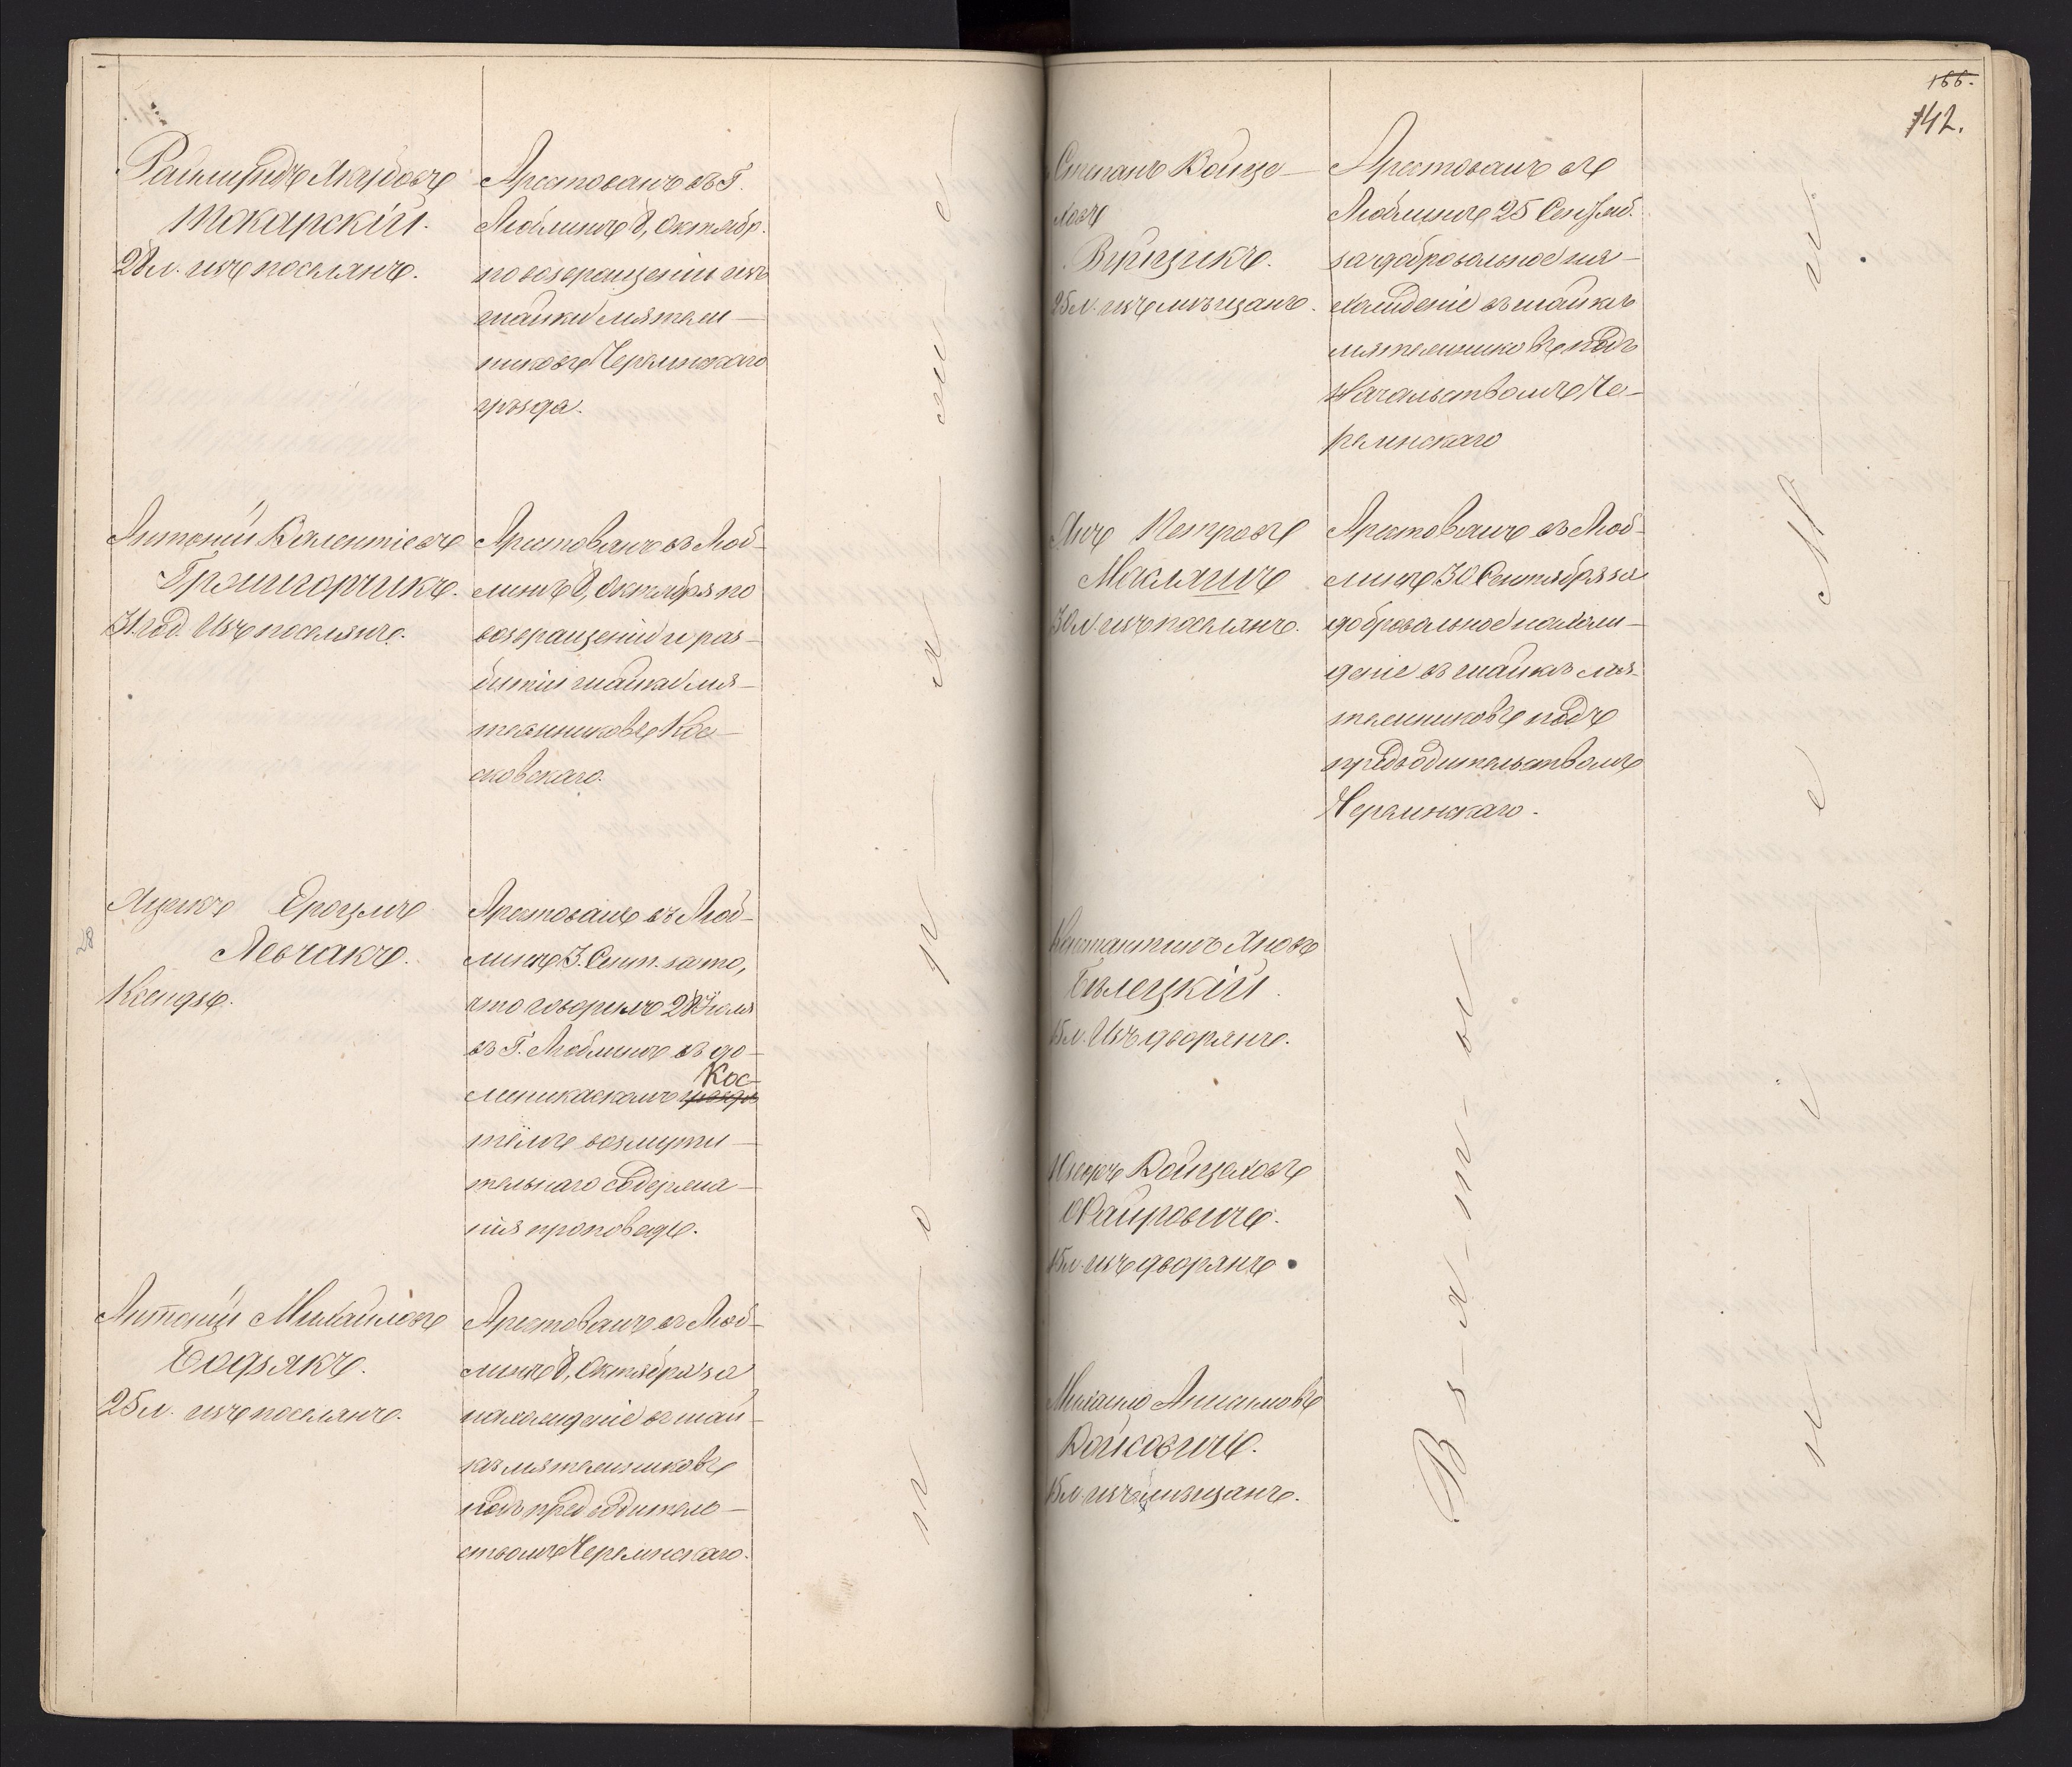 Раймундъ Якубовъ
Макарскій.
28 л. изъ поселянъ.
Арестованъ въ Г.
Люблинѣ 8, Октябр.
по возвращеніи изъ
шайки мятеж—
никовъ Черминскаго
уѣзда.
Антоній Валентіевъ
Грлигорчикъ.
31. год. Изъ поселянъ.
Арестованъ въ Люб—
линѣ 8, Октября по
возвращеніи и раз—
битіи шайки мя—
тежниковъ Кос—
сковскаго.
Яцекъ
Левчакъ.
Ксендзъ.
Арестованъ въ Люб—
линѣ 3. Сент. за то,
что говорилъ 28 Іюля
въ Г. Люблинѣ въ до—
миникаскомъ Кос—
тёлѣ возмути—
тельнаго содержа—
нія проповѣдь.
Антоній Михайловъ
Бодзякъ.
25 л. изъ поселянъ.
Арестованъ въ Люб—
линѣ 8, Октября за
нахожденіе въ шай—
кѣ мятежниковъ
подъ предводитель—
ствомъ Черминскаго.
166.
142.
Степанъ Войце—
ховъ
Вуйцикъ.
25 л. изъ мѣщанъ.
Арестованъ въ
Люблинѣ 25 Сентяб.
за добровольное на—
хожденіе въ шайкѣ
мятежниковъ подъ
Начальствомъ Че—
рминскаго
Янъ Петровъ
Маслянъ
30 л. изъ поселянъ.
Арестованъ въ Люб—
линѣ 30 Сентября за
добровольное нахож—
деніе въ шайкѣ мя—
тежниковъ подъ
предводительствомъ
Черминскаго.
Константинъ Яновъ
Бѣлецкій.
15 л. Изъ дворянъ.
Войцеховъ
15 л. изъ дворянъ.
Войковичъ.
15 л. изъ мѣщанъ.
В—з—я—т—ы